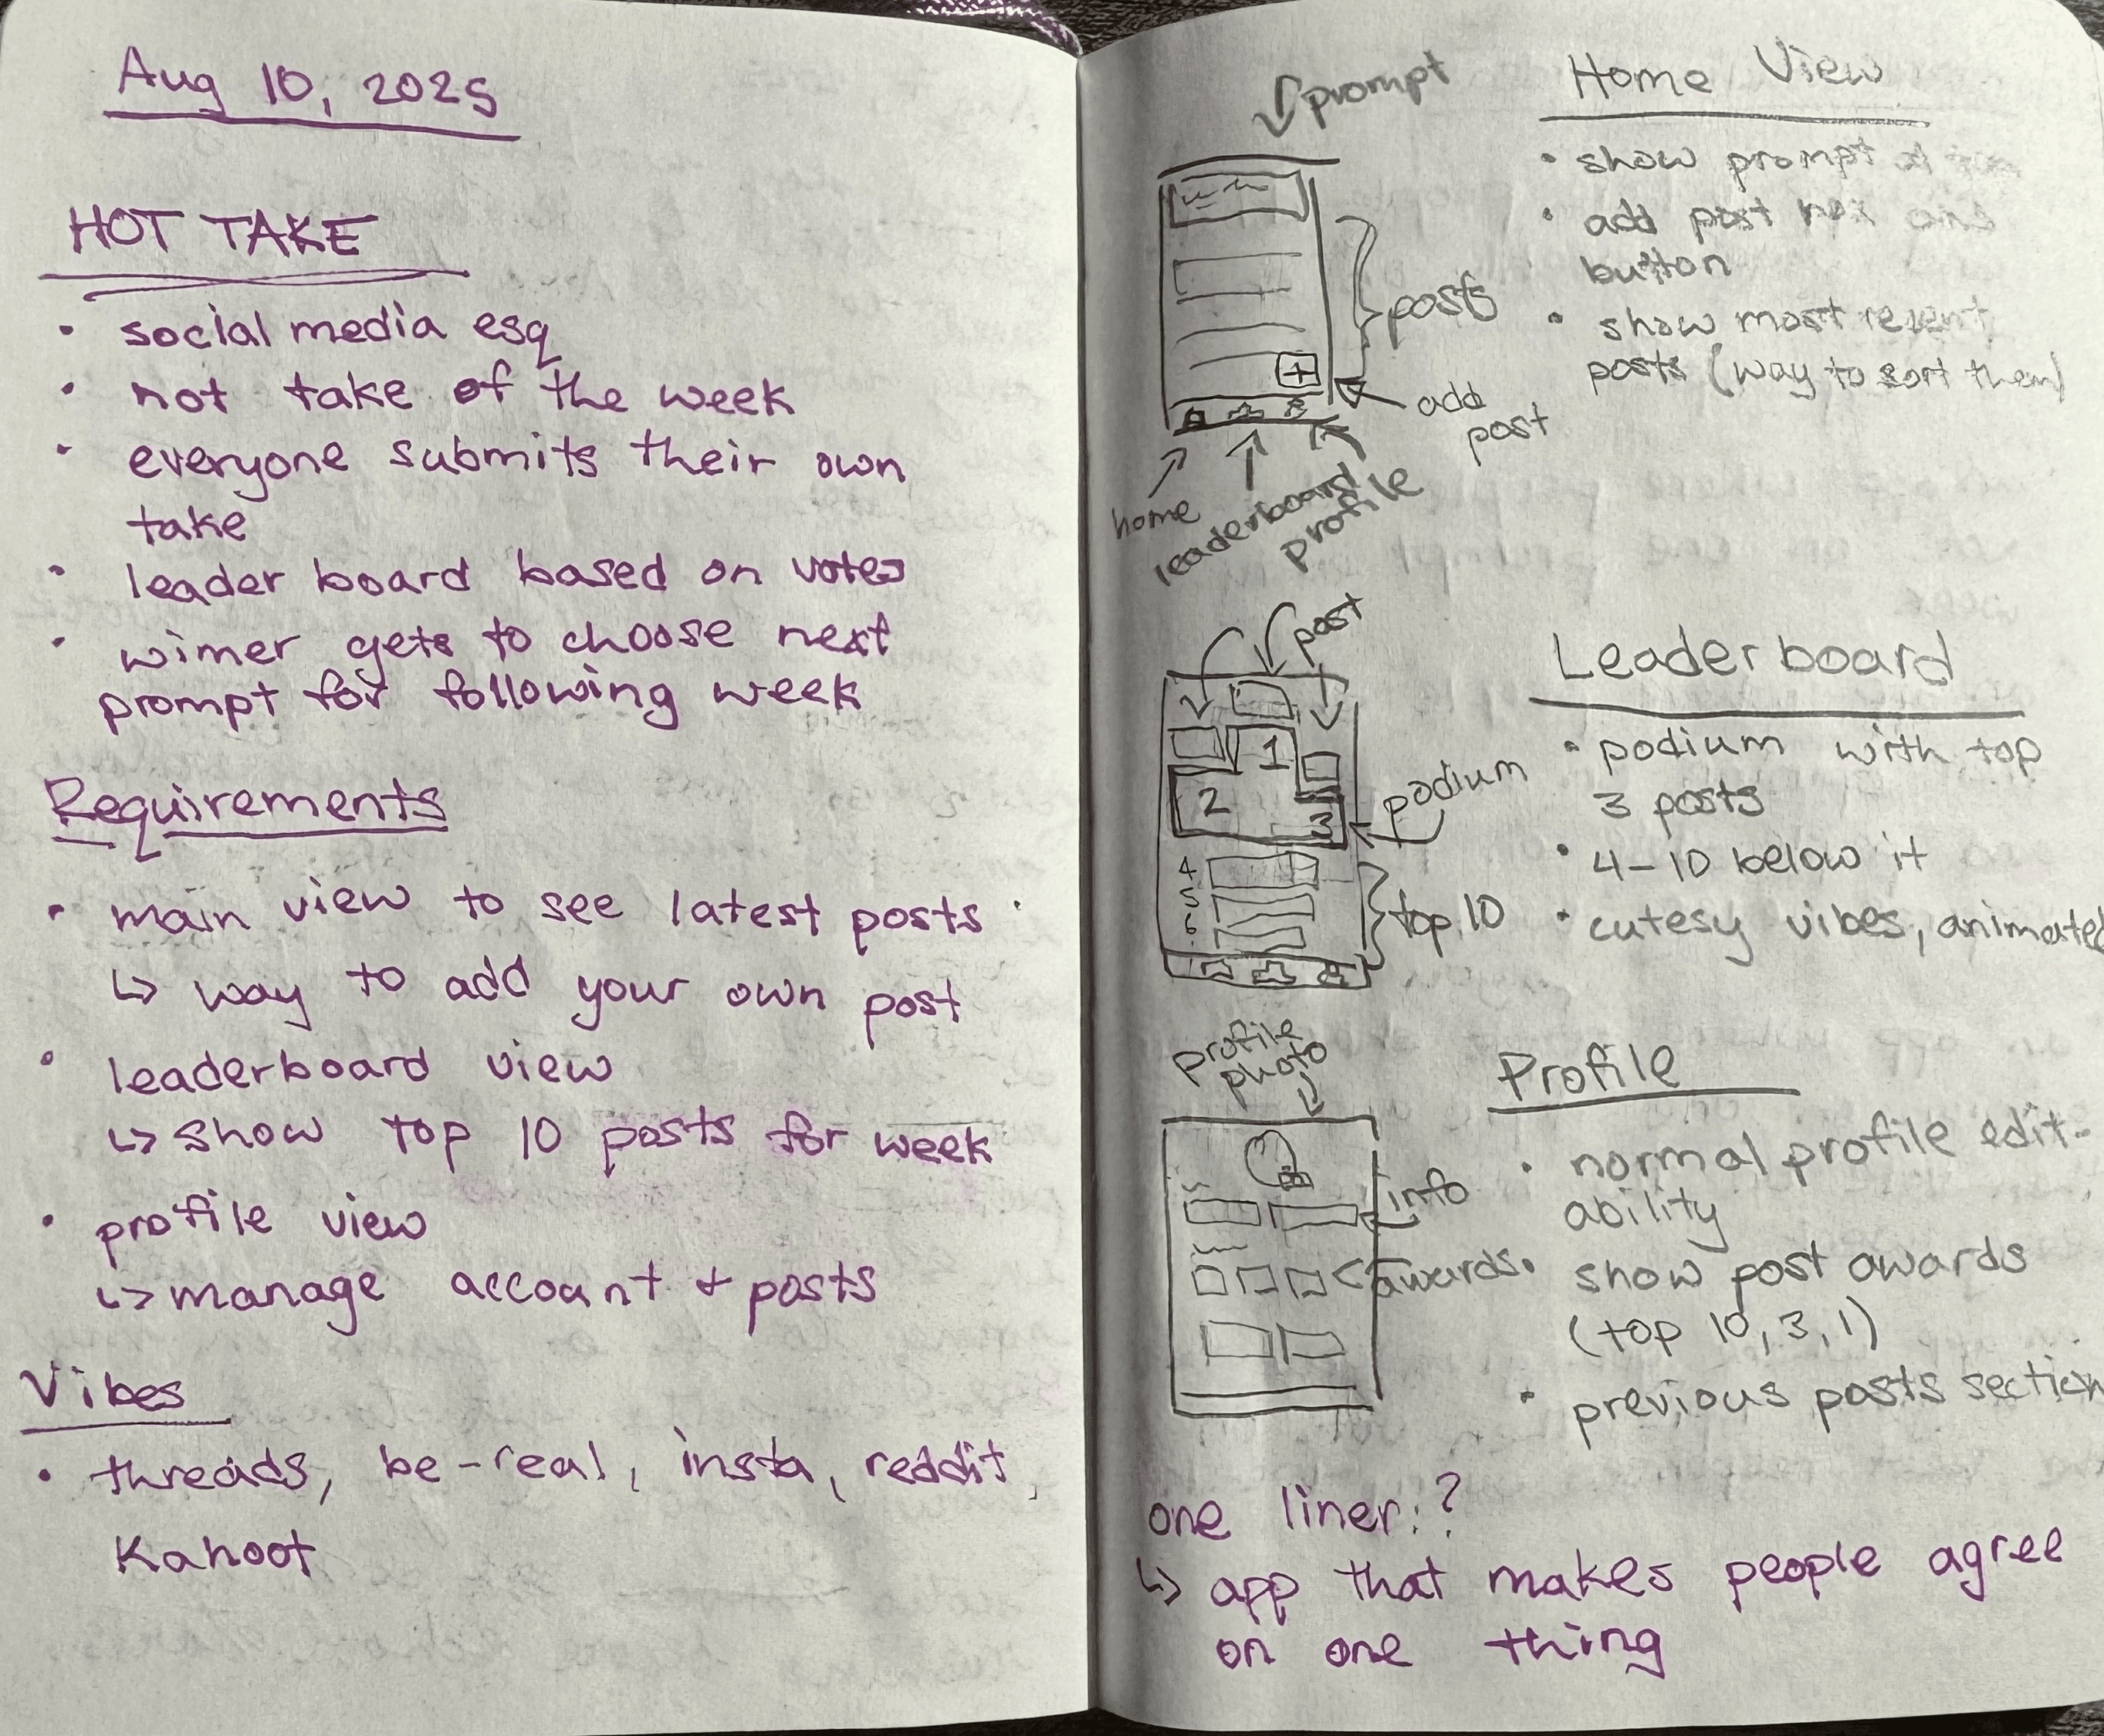 Aug 10, 2025
HOT TAKE
• social media esq
• hot take of the week
• everyone submits their own
take
• leader board based on votes
• winner gets to choose next
prompt for following week
Requirements
• main view to see latest posts
↳ way to add your own post
• leaderboard view
↳ show top 10 posts for week
• profile view
↳ manage account + posts
Vibes
• threads, be-real, insta, reddit,
Kahoot
prompt
posts
+
add
post
home
leaderboard
profile
Home View
• show prompt at
• add post box and
button
• show most recent
posts (way to sort them)
post
1
2
3
podium
4
5
6
top 10
Leaderboard
• podium with top
3 posts
• 4-10 below it
• cutesy vibes, animated
profile
photo
info
awards
Profile
• normal profile edit-
ability
• show post awards
(top 10, 3, 1)
• previous posts section
one liner:?
↳ app that makes people agree
on one thing